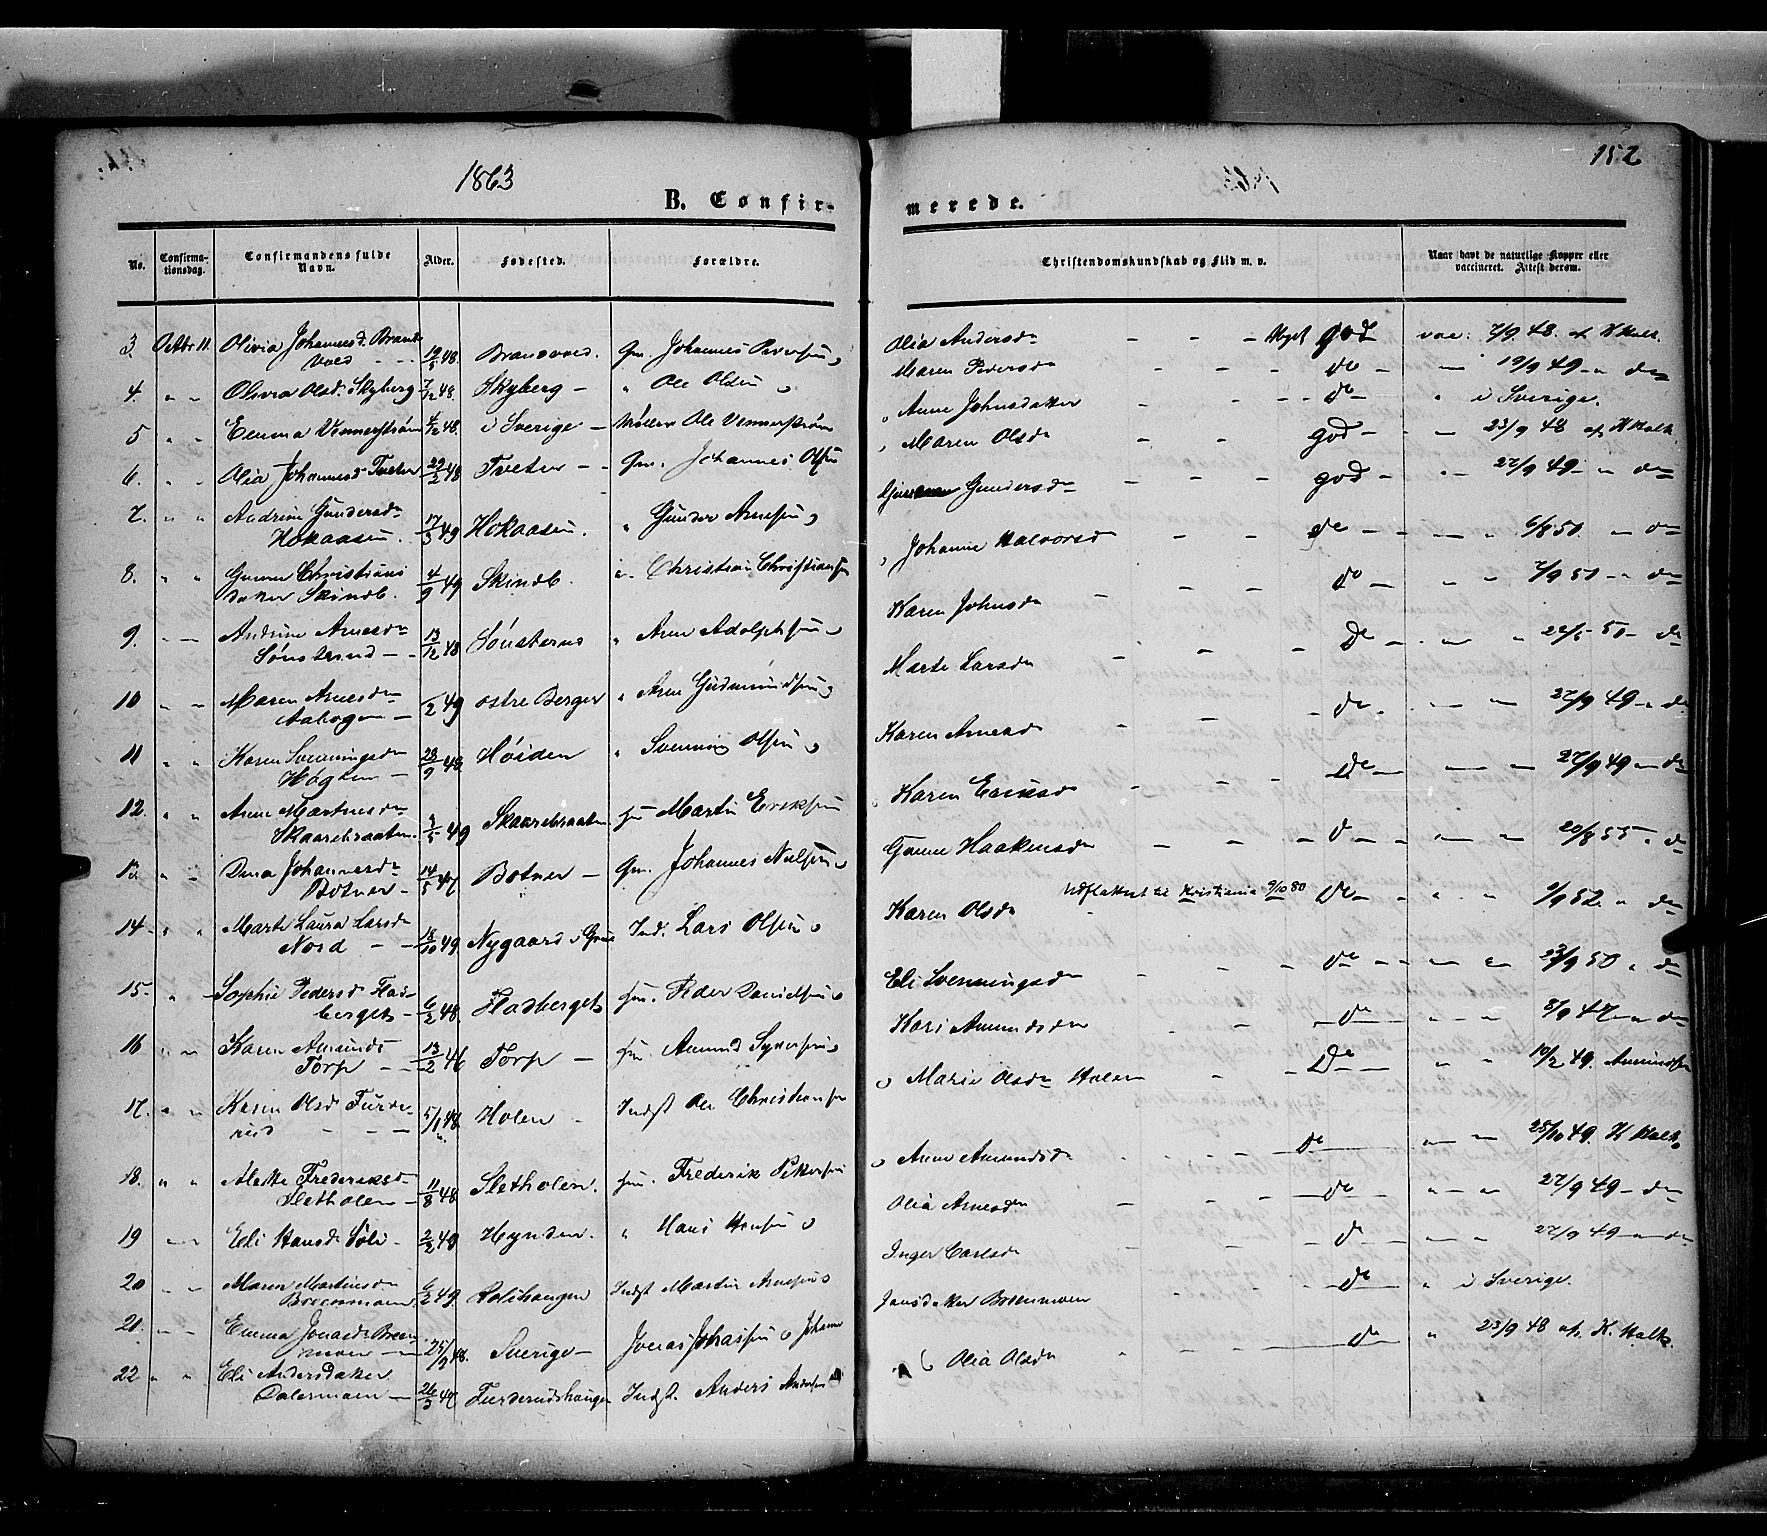 152
1863
B. Confir-
merede.
No.
Confirma-
tionsdag.
Confirmandens fulde
Navn.
Alder.
Fødested.
Forældre.
Christendomskundskab og Flid m. v.
Naar havt de naturlige Kopper eller
vaccineret. Attest derom.
3. Octbr 11. Olivia Johannesd. Brand
vold - - 48. Brandvold. Gm Johannes Pedersen o
Olia Andersd - - - Meget god vac. 7/9 48. af H Kolk.
4. " " Olivia Olsd. Skyberg 7/12 48. Skyberg - " Ole Olsen o
Maren Pedersd - - - do - - 19/9 49 - " do
5 " " Emma Vennerstrøm 4/12 48. i Sverige - Møller Ole Vennerstrøm
" Anne Johnsdatter - - - do - " i Sverige.
6. " " Olia Johannesd Tveter 22/2 48 Tveter - - Gm. Johannes Olsen
" Maren Olsd - - god - - 23/9 48 af H Kolk
7. " " Andrine Gundersd 17/3 49 Hokaasen " Gunder Arnesen o
Hokaasen.
Gundersd - - - god - " - 27/9 49 - " do
8. " " Gunne Christians 4/9 49 Skindb. " Christian Christiansen
datter Skindb.
" Johanne Halvorsd - - - do - - - " 6/8 50 - d
9. - - Andrine Arnesd 13/12 48 Sønsterud " Arne Adolphsen o
Sønsterud - -
Karen Johnsd - - - do - " " 7/9 50 - " do
10 " " Maren Arnesd /2 49 østre Berger " Arne Gudmundsen o
Aabogen -
Marte Larsd - - - do - - " 22/5 50 - do
11 " " Karen Svenningsd 23/9 48 Høiden " Svenning Olsen o
Karen Arnesd - - - do. - - - 27/9 49 - do
12. " " Anne Martinesd 49 Skaarebraaten Gm Martin Eriksen
Skaarebraaten.
" Karen Eriksd - - - do - - - 27/9 49 - do
13. " - Dina Johannesd 14/5 47 Botner - Gm. Johannes Nielsen o
Botner -
Gunne Haakensd - - - d - - " - 20/8 55 " d
14 - " " Marte Laura Larsd 18/10 49. Nygaard i Grue Ind. Lars Olsen o
Nord - -
Karen Olsd Udflyttet til Kristiania 9/10 80 do - " " /9 52. " do
15. " - Sophie Pedersd Flad- 6/2 48. Fladberget Gm. Peder Danielsen o
berget -
Eli Svenningsd - - - do - - - 23/9 50 " do
16 " " Karen Amunds 13/2 46 Torp - Gm. Amund Syversen o
Torp - -
Kari Amundsd - - do - " - " 8/9 47 - " do
17. " " Karen Olsd Furde- 5/1 48. Holen - Indst Ole Christiansen
rud - - -
o Marie Olsd Holen - - do - " " 10/2 49. Amundsen
18. " " Mette Frederiksd 11/8 48. Sletholen. Gm. Frederik Pettersen
Sletholen -
o Anne Amundsd - - - do - - - 25/10 49. H Kolk
19 - - Eli Hansd Søli - 2/2 48 Hynden. " Hans Hansen o
Olia Arnesd - - - do - " " 27/9 49 - do
20 " " Maren Martinsd 6/2 49 Rolihaugen Indst Martin Arnesen o
Breenmoen.
Inger Carlsd - - - do - - - 27/9 49 - " do
21. " " Emma Jonasd Breen- 25/9 48. Sverige - Jonas Johassen o Johanne
moen -
Jansdatter Breenmoen - - - do - " i Sverige.
22 " " Eli Andersdatter 26/3 47 Furderudshaugen Indst. Anders Andersen
Dalermoen -
Olia Olsd - - - do " 23/9 48 af. H. Kolk.